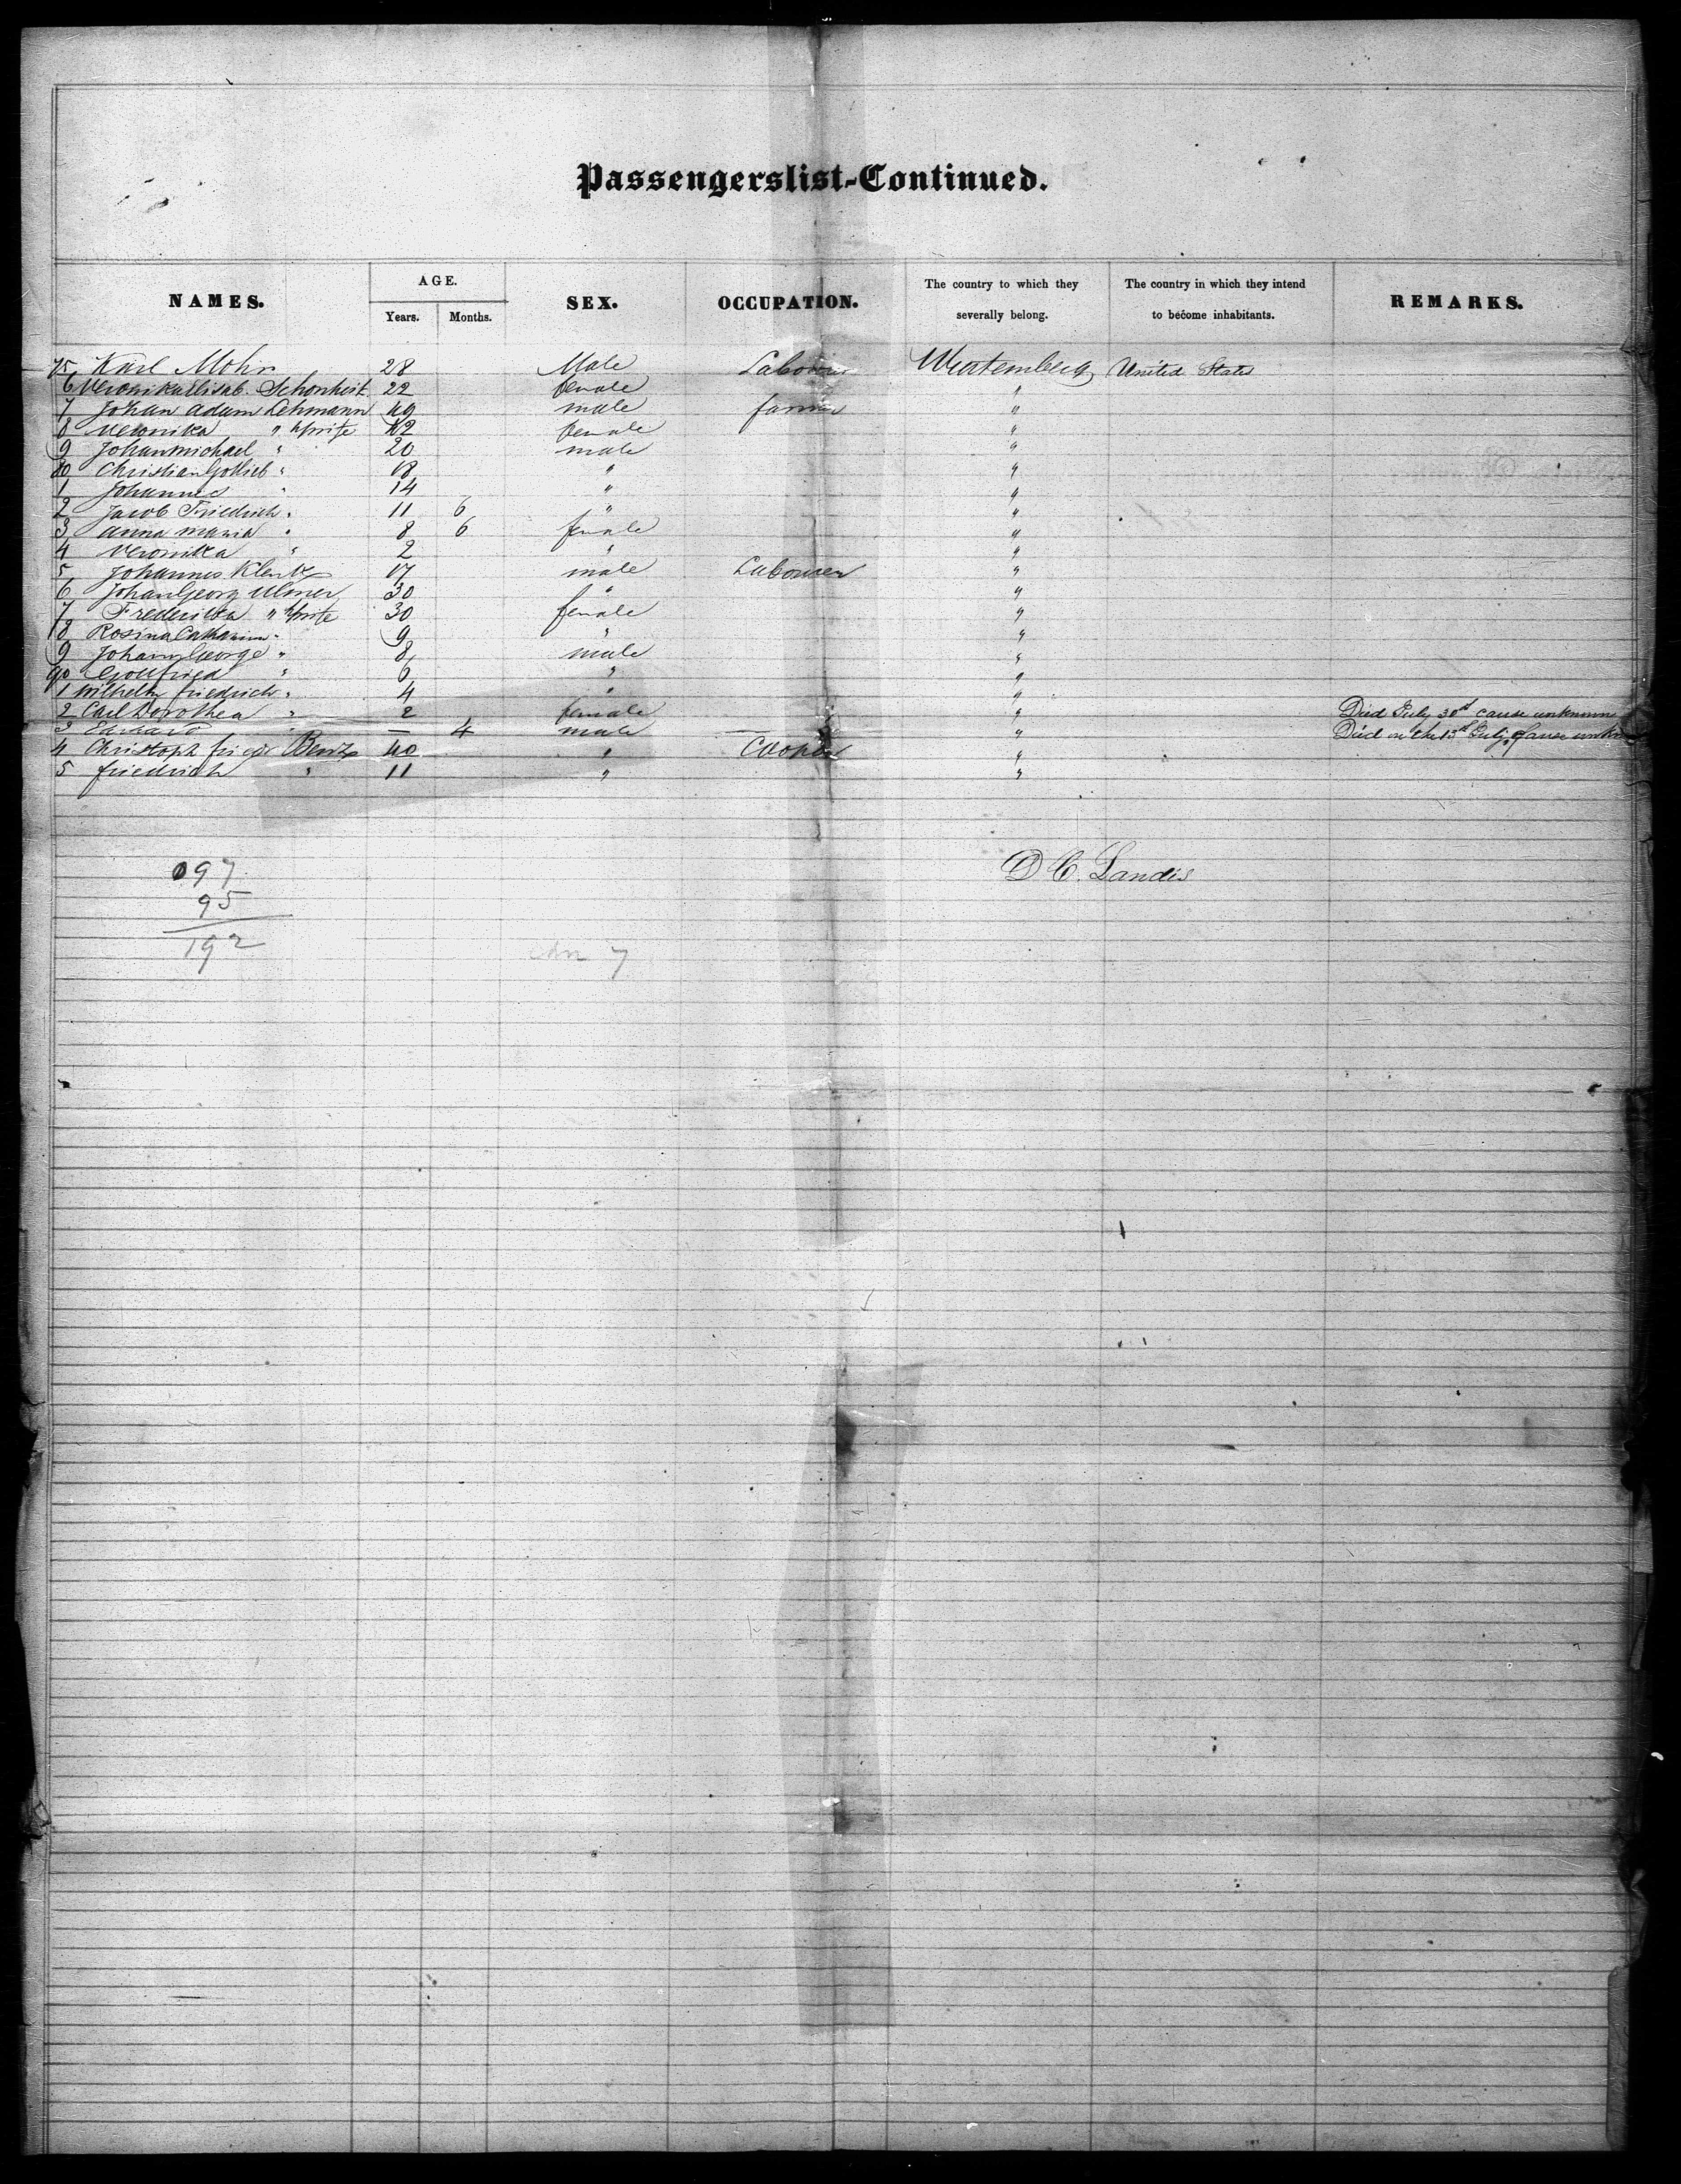 Passengerslist-Continued.
NAMES. AGE. SEX. OCCUPATION. The country to which they severally belong. The country in which they intend to become inhabitants. REMARKS.
Years. Months.
75 Karl Mohr 28 Male Labourer Wurtemberg United States
6 Veronika Elisab. Schonheit 22 female "
7 Johan Adam Lehmann 49 male farmer "
8 Veronika " wife 42 female "
9 Johanmichael " 20 male "
80 Christian Gotlieb " 18 " "
1 Johannes " 14 " "
2 Jacob Friedrich " 11 6 " "
3 anna maria " 8 6 female "
4 Veronika " 2 " "
5 Johannes 17 male Labourer "
6 Johan Georg Ulmer 30 " "
7 Fredericka " wife 30 female "
8 Rosina Catharina " 9 " "
9 Johann George " 8 male "
90 Gottfried " 6 " "
1 Wilhelm friedrich " 4 " "
2 Carl Dorothea " 2 female " Died July 30th cause unknown
3 Eduard " – 4 male " Died on the 13th July, cause unknown
4 Christoph fried Bentz 40 " Cooper "
5 friedrich " 11 " "
D C. Landis
97
95
192
7